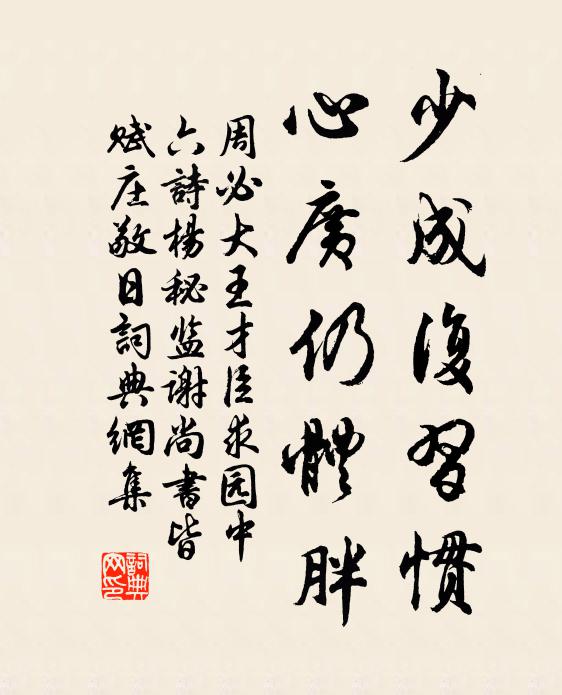 少成復習慣
心廣仍體胖
周必大王才臣求园中
六詩楊秘监谢尚書皆
赋庄敬日詞典網集
詞典
网印